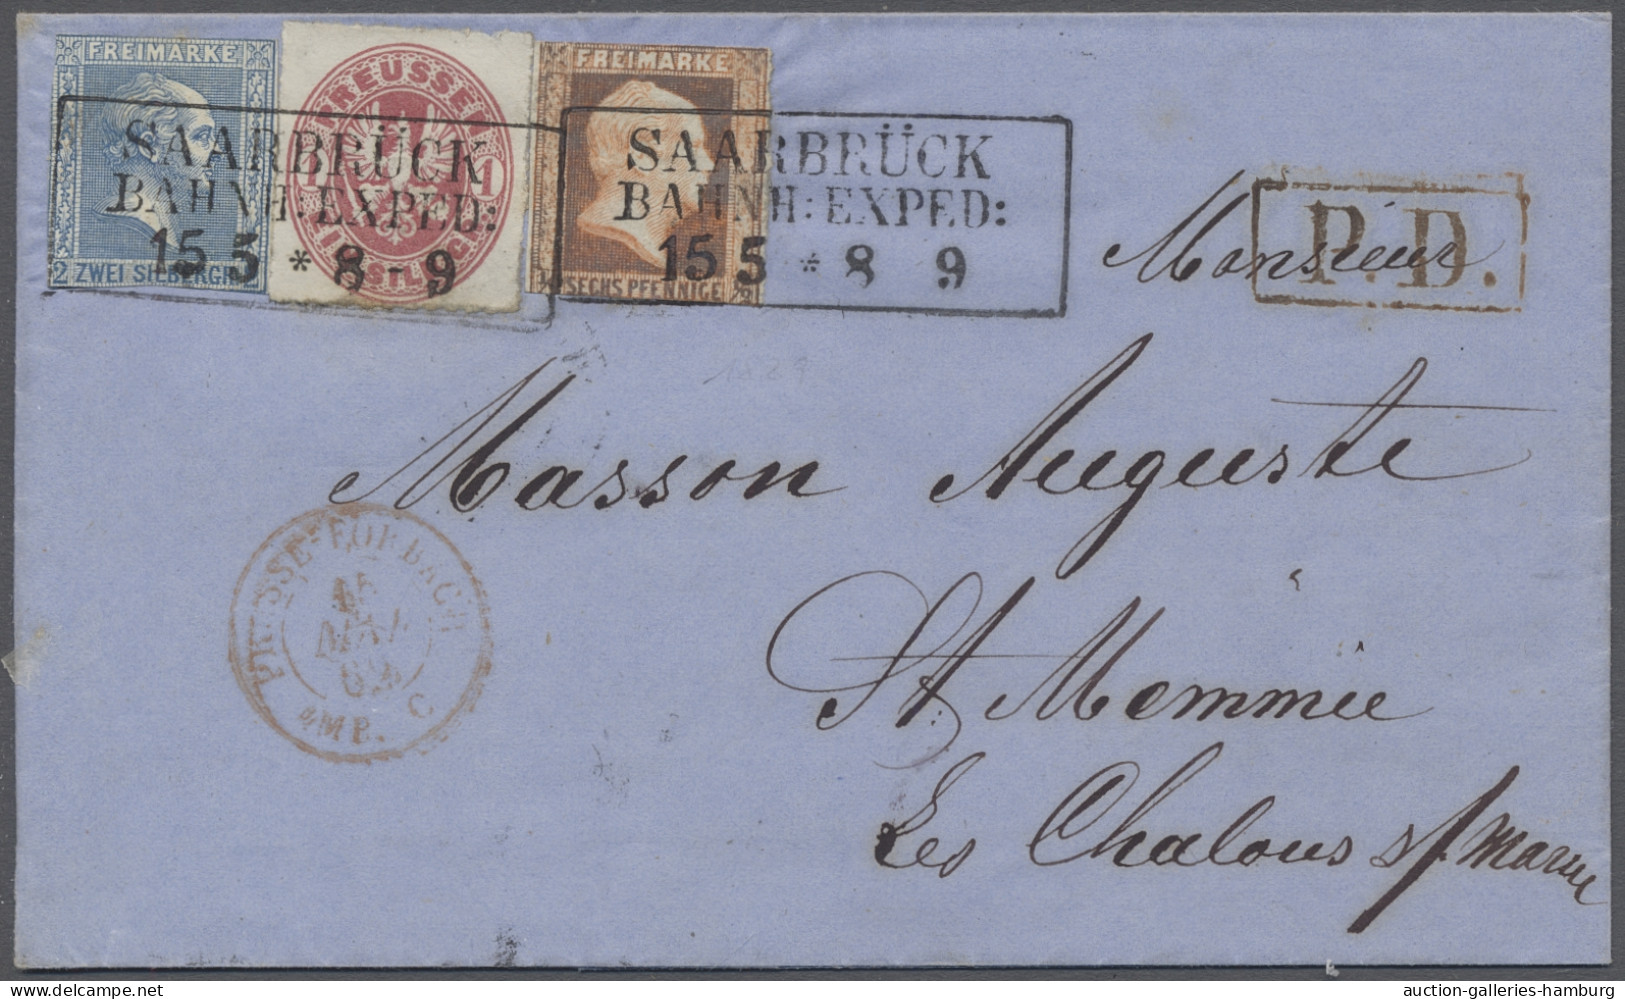 FREIMARKE
2 ZWEI SILBERGR
PREUSSEN
1
FREIMARKE
SECHS PFENNIGE
SAARBRÜCK
BAHNH: EXPED:
15 5 * 8 - 9
SAARBRÜCK
BAHNH: EXPED:
15 5 * 8 9
P.D.
Monsieur
Masson Auguste
St. Memmie
Les Chalons s/ Marne
PRUSSE-FORBACH
MAI
AMB. C
auction-galleries-hamburg